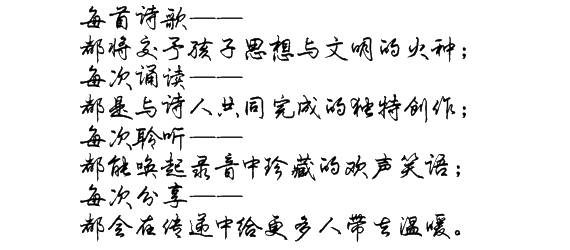 每首诗歌——
都将交予孩子思想与文明的火种；
每次诵读——
都是与诗人共同完成的独特创作；
每次聆听——
都能唤起录音中珍藏的欢声笑语；
每次分享——
都会在传递中给更多人带去温暖。